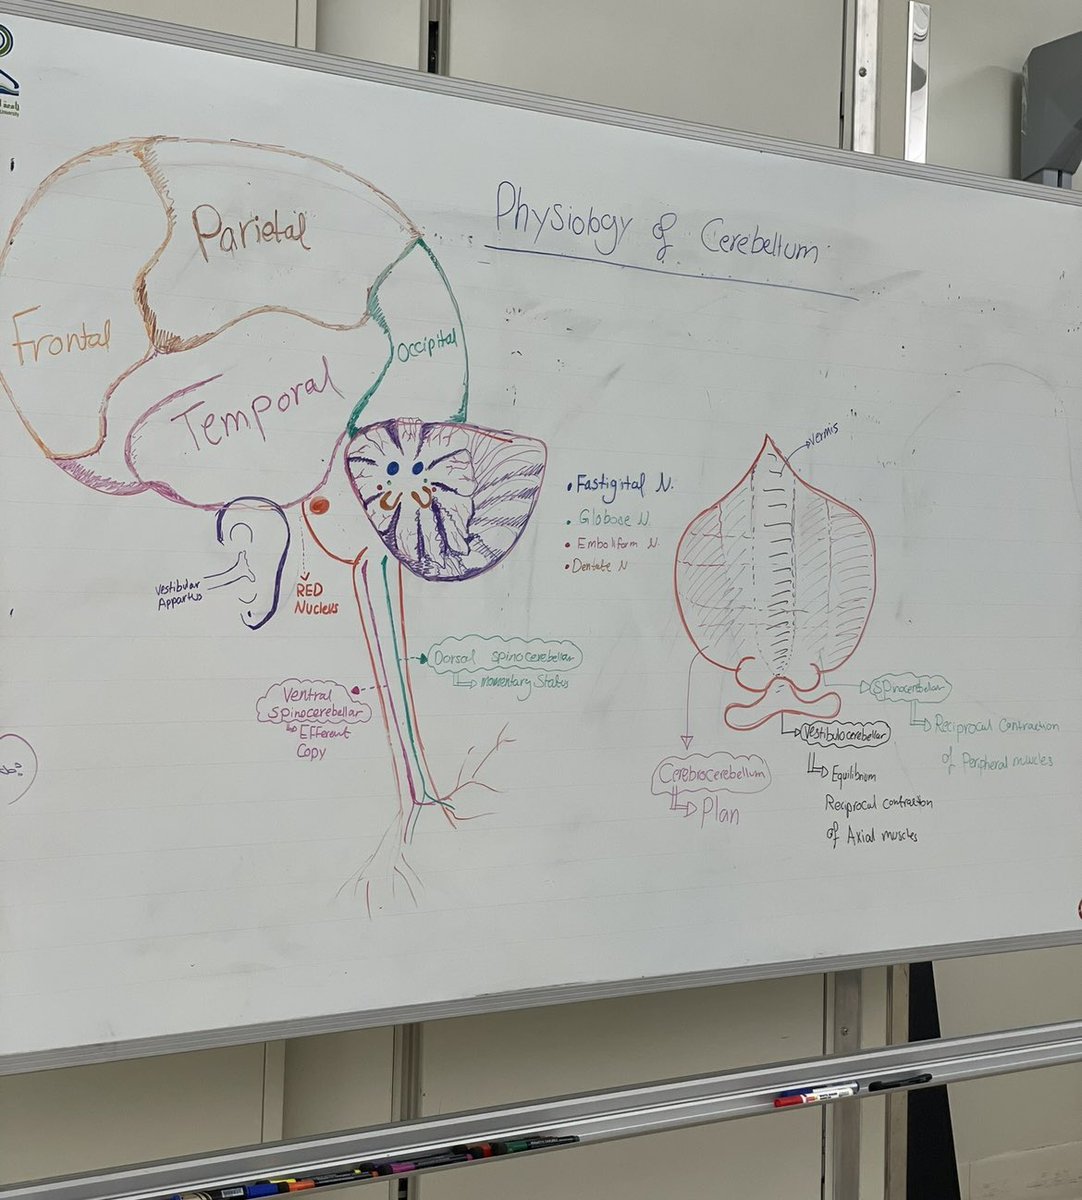 Physiology of Cerebellum
Parietal
Frontal
Occipital
Temporal
Vermis
• Fastigital N.
• Globose N.
• Emboliform N.
• Dentate N
Vestibular
Appartus
RED
Nucleus
Dorsal spinocerebellar
momentary Status
Ventral
spinocerebellar
Efferent
Copy
Spinocerebellar
Reciprocal Contraction
of Peripheral muscles
Vestibulocerebellar
Equilibrium
Reciprocal contraction
of Axial muscles
Cerebrocerebellum
Plan
University